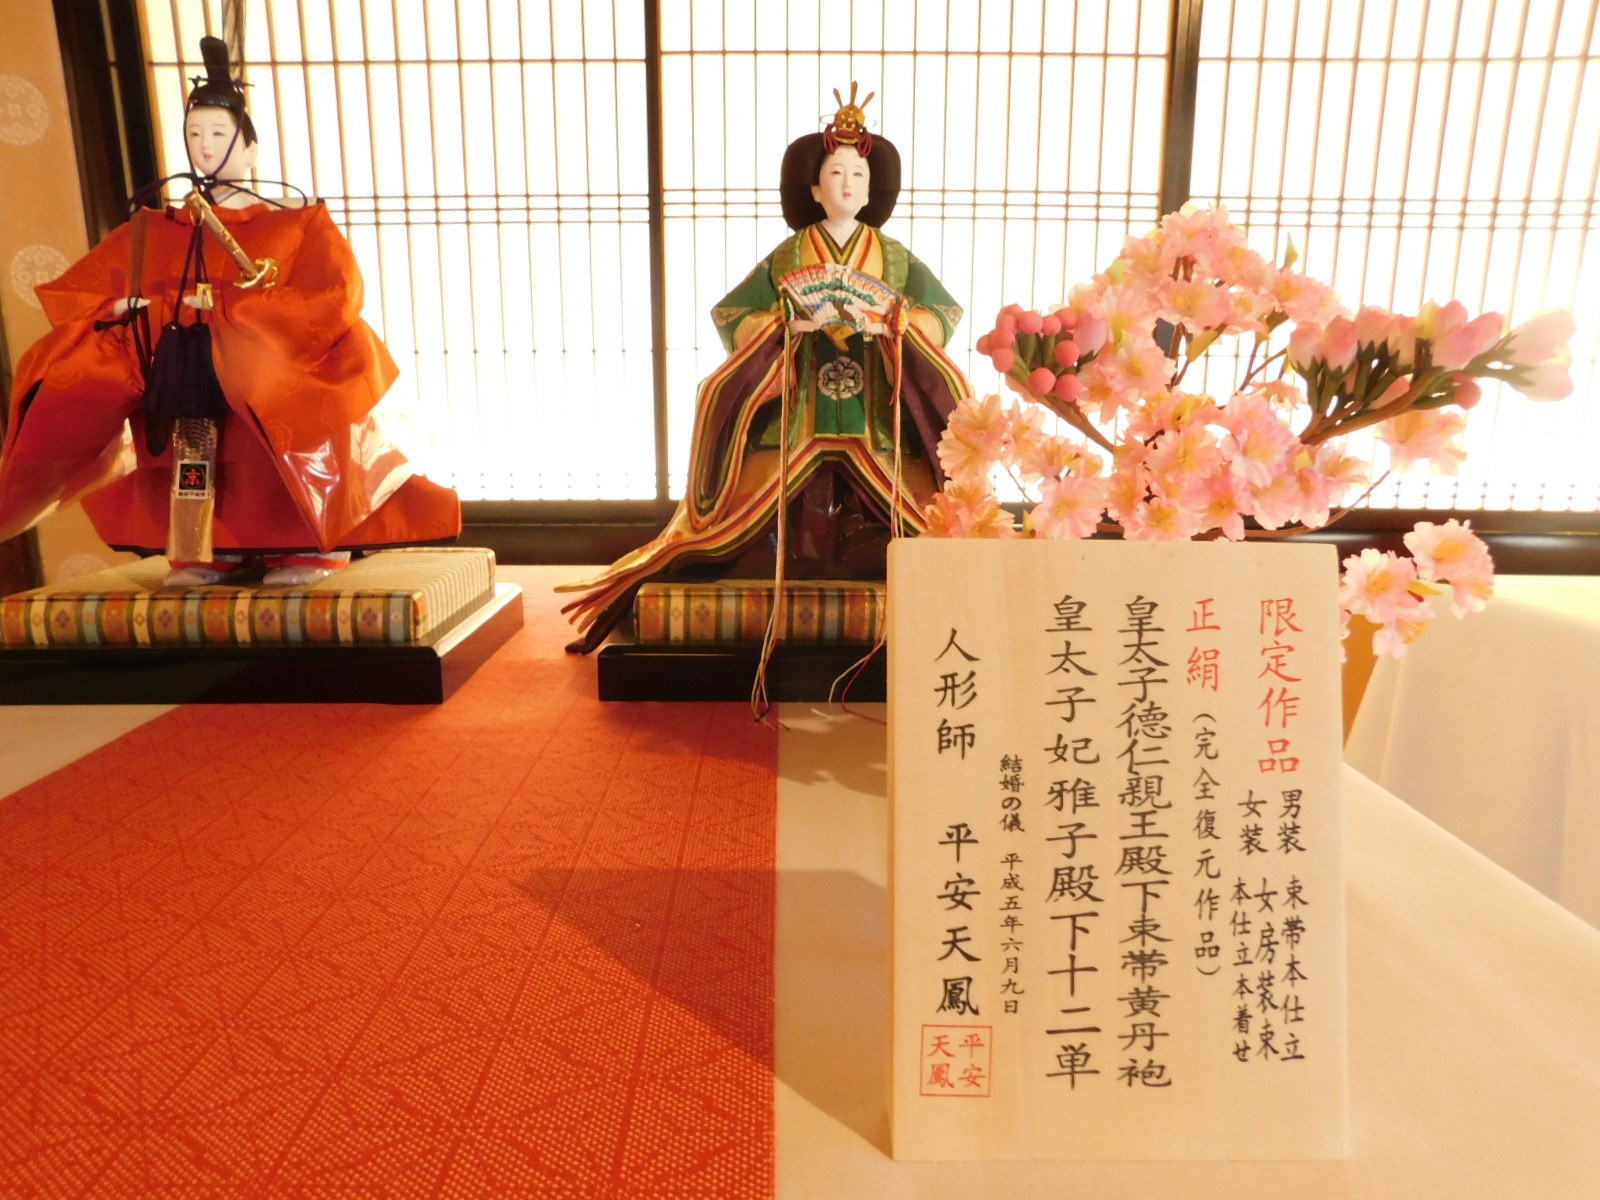 限定作品
男装 束帯本仕立
女装 女房装束
本仕立本着せ
正絹(完全復元作品)
皇太子德仁親王殿下束帯黄丹袍
皇太子妃雅子殿下十二単
結婚の儀 平成五年六月九日
人形師 平安天鳳
平安
天鳳
京